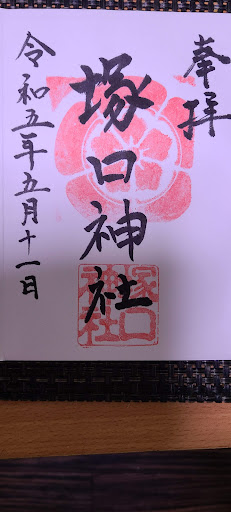 奉拝
塚口神社
塚口
神社
令和五年五月十一日